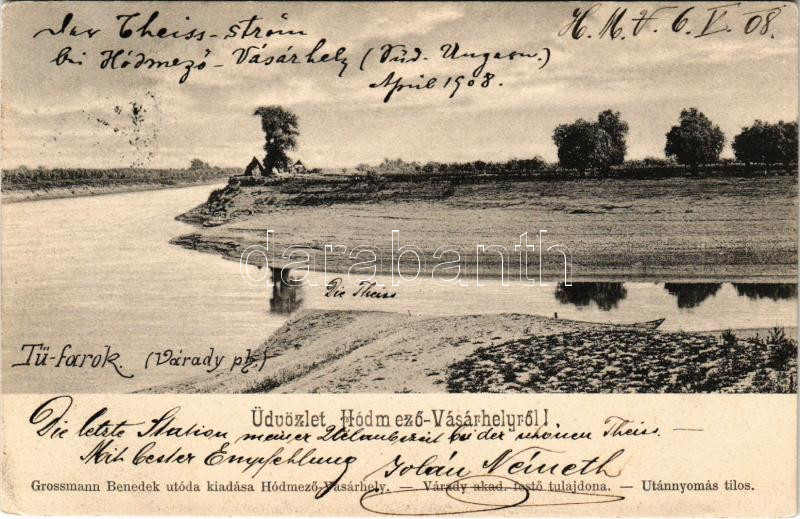 H. M. V. 6. V. 08.
Der Theiss-ström
bei Hódmező-Vásárhely (Süd. Ungarn.)
April 1908.
darabanth
Die Theiss
Tü-farok. (Várady ph.)
Üdvözlet Hódmező-Vásárhelyről!
Die letzte Station meiner bei der schönen Theiss. —
Mit bester Empfehlung Németh
Grossmann Benedek utóda kiadása Hódmező-Vásárhely. — Várady akad. festő tulajdona. — Utánnyomás tilos.